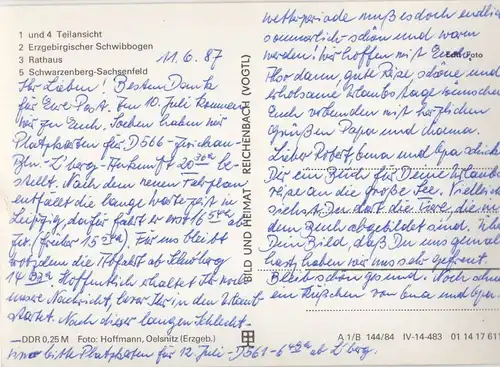 1 und 4 Teilansicht
2 Erzgebirgischer Schwibbogen
3 Rathaus
5 Schwarzenberg-Sachsenfeld
11.6.87
Ihr Lieben! Besten Dank
für Eure Post. Am 10. Juli kommen
wir zu Euch. Soeben haben wir
Platzkarten für D566 - Zwickau-
Bln.-L'berg - Ankunft 20 30a be-
stellt. Nach dem neuen Fahrplan
entfällt die lange Wartezeit in
Leipzig, dafür fährt er erst 16
ab (früher 15 ). Für uns bleibt
trotzdem die Abfahrt ab Schw'berg
14 . Hoffentlich erhaltet Ihr noch
unsere Nachricht, bevor Ihr in den Urlaub
startet. Nach dieser langen Schlecht-
wetterperiode muß es doch endlich
sommerlich schön und warm
werden! Wir hoffen mit Euch.
Also dann, gute Reise, schöne und
erholsame Urlaubstage wünschen
Euch verbunden mit herzlichen
Grüßen Papa und Mama.
Lieber Robert, Oma und Opa schicken
Dir ein Buch für Deine Urlaubs-
reise an die große See. Vielleicht
siehst Du dort die Tiere, die in
dem Buch abgebildet sind. Über
Dein Bild, daß Du uns gemalt
hast, haben wir uns sehr gefreut.
Bleib schön gesund. Noch
ein Küßchen von Oma und Opa
BILD UND HEIMAT · REICHENBACH (VOGTL)
Echt Foto
DDR 0,25 M Foto: Hoffmann, Oelsnitz (Erzgeb.)
A 1/B 144/84 IV-14-483 01 14 17 611
bitte Platzkarten für 12. Juli - D561 - ab L'berg.